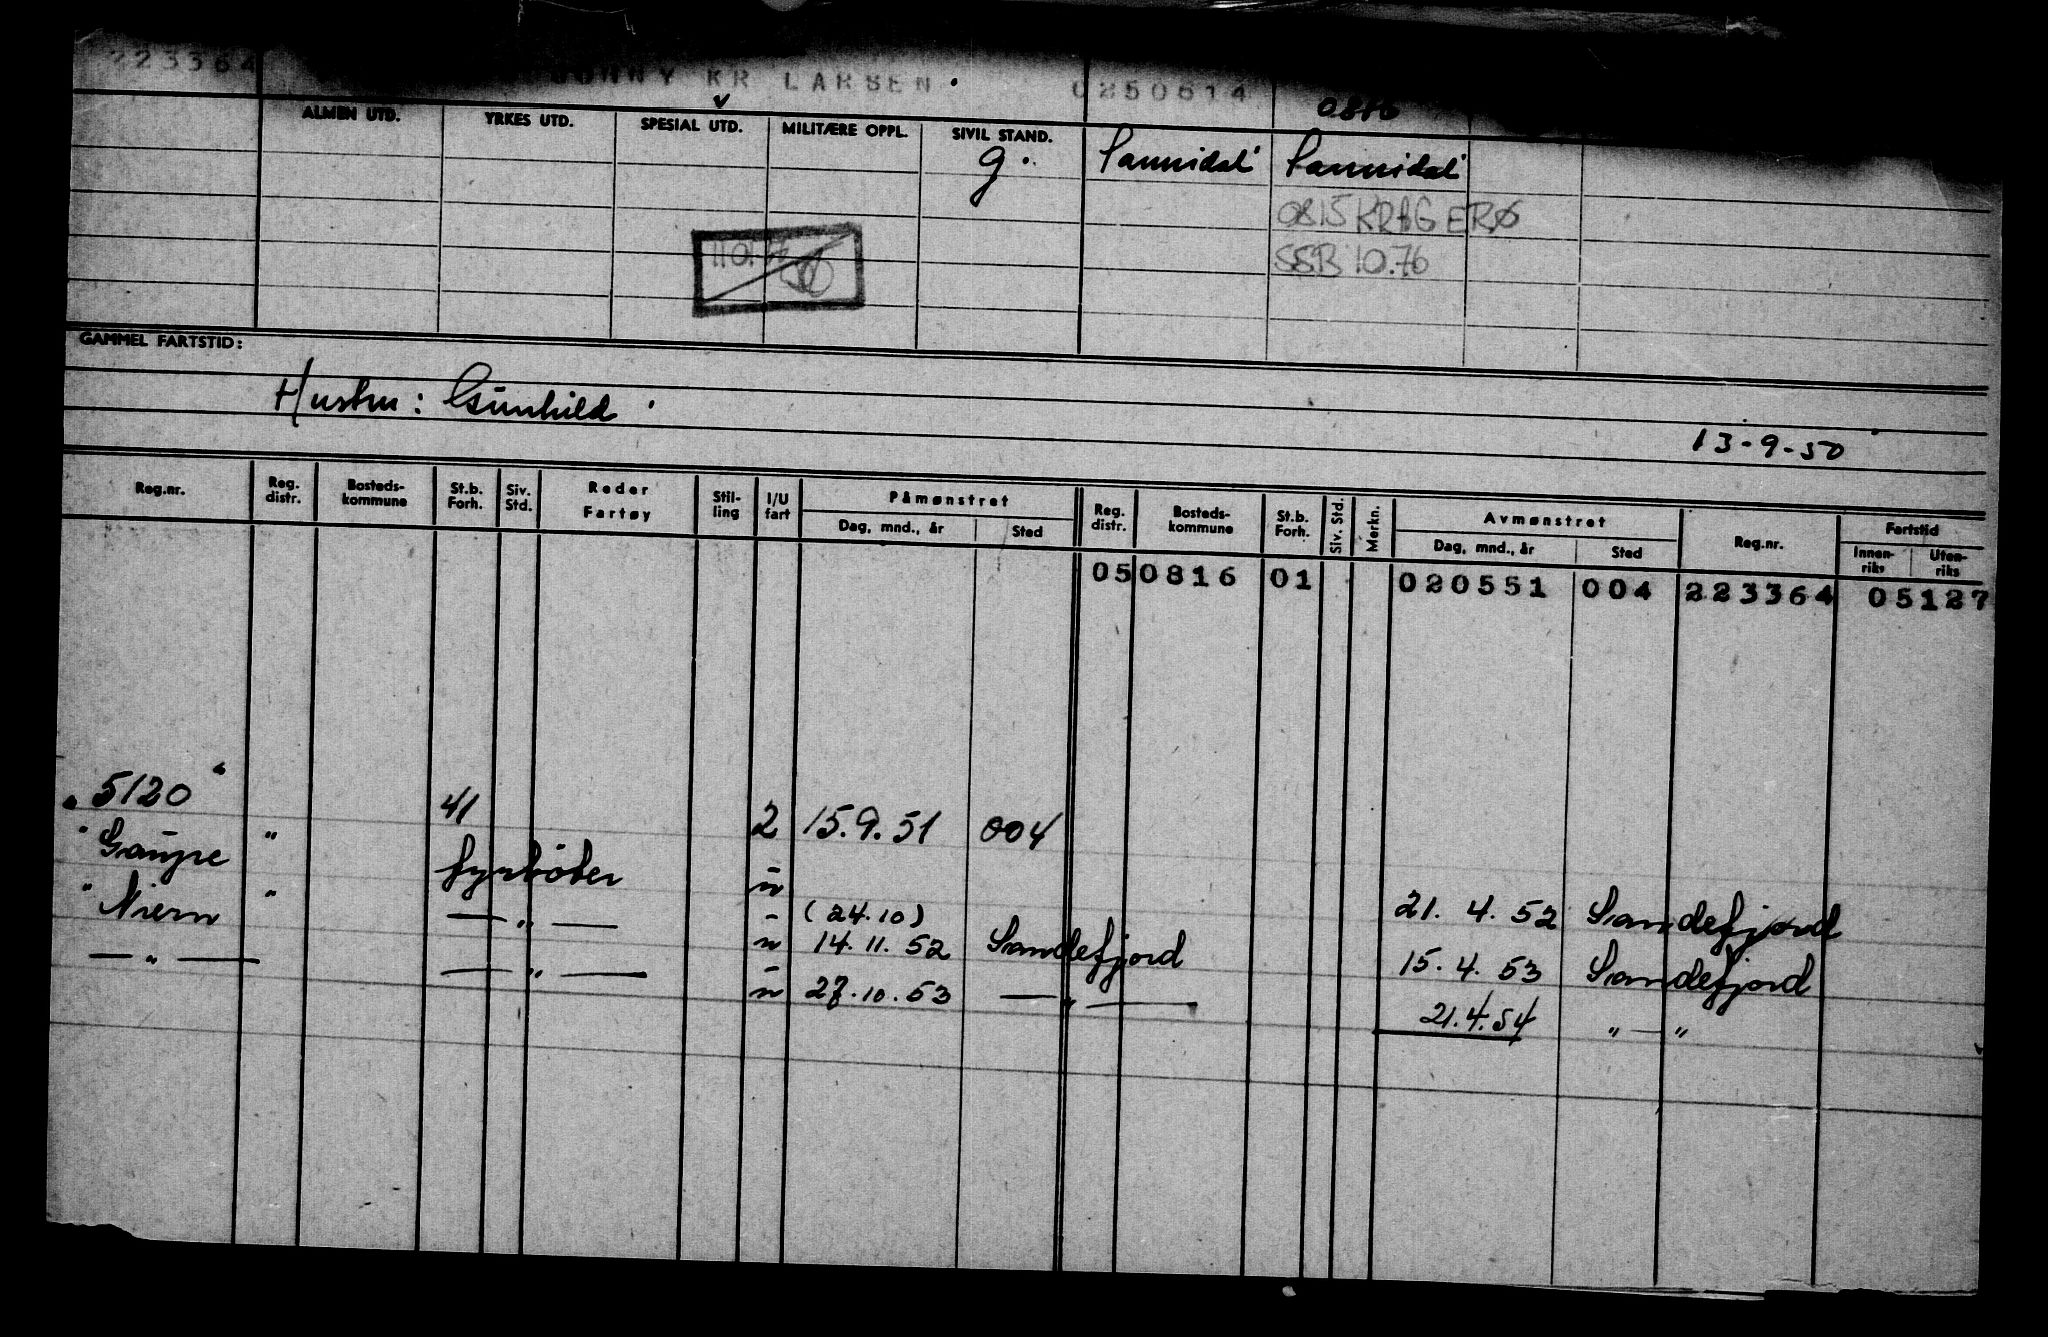 223364 KR LARSEN 0250614 0816
ALMEN UTD. YRKES UTD. SPESIAL UTD. MILITÆRE OPPL. SIVIL STAND.
g. Sannidal Sannidal
0815 KRAGERØ
SSB 10.76
GAMMEL FARTSTID:
Hustru: Gunhild
13-9-50
Reg.nr. Reg. distr. Bosteds-kommune St.b. Forh. Siv. Std. Reder Fartøy Stil-ling I/U fart Påmønstret Dag, mnd., år Sted Reg. distr. Bosteds-kommune St.b. Forh. Siv. Std. Merkn. Avmønstret Dag, mnd., år Sted Reg.nr. Fartstid Innen-riks Uten-riks
05 0816 01 020551 004 223364 05127
5120 " 41 2 15.9.51 004
" Gaupe " fyrbøter u (24.10) 21.4.52 Sandefjord
" " — " — u 14.11.52 Sandefjord 15.4.53 Sandefjord
— " — — " — u 27.10.53 — " — 21.4.54 " — "